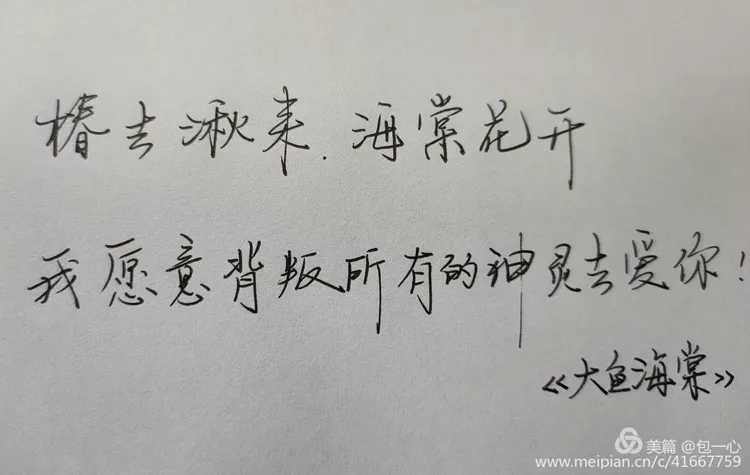 椿去湫来.海棠花开
我愿意背叛所有的神灵去爱你!
《大鱼海棠》
美篇 @包一心
www.meipian.cn/c/41667759